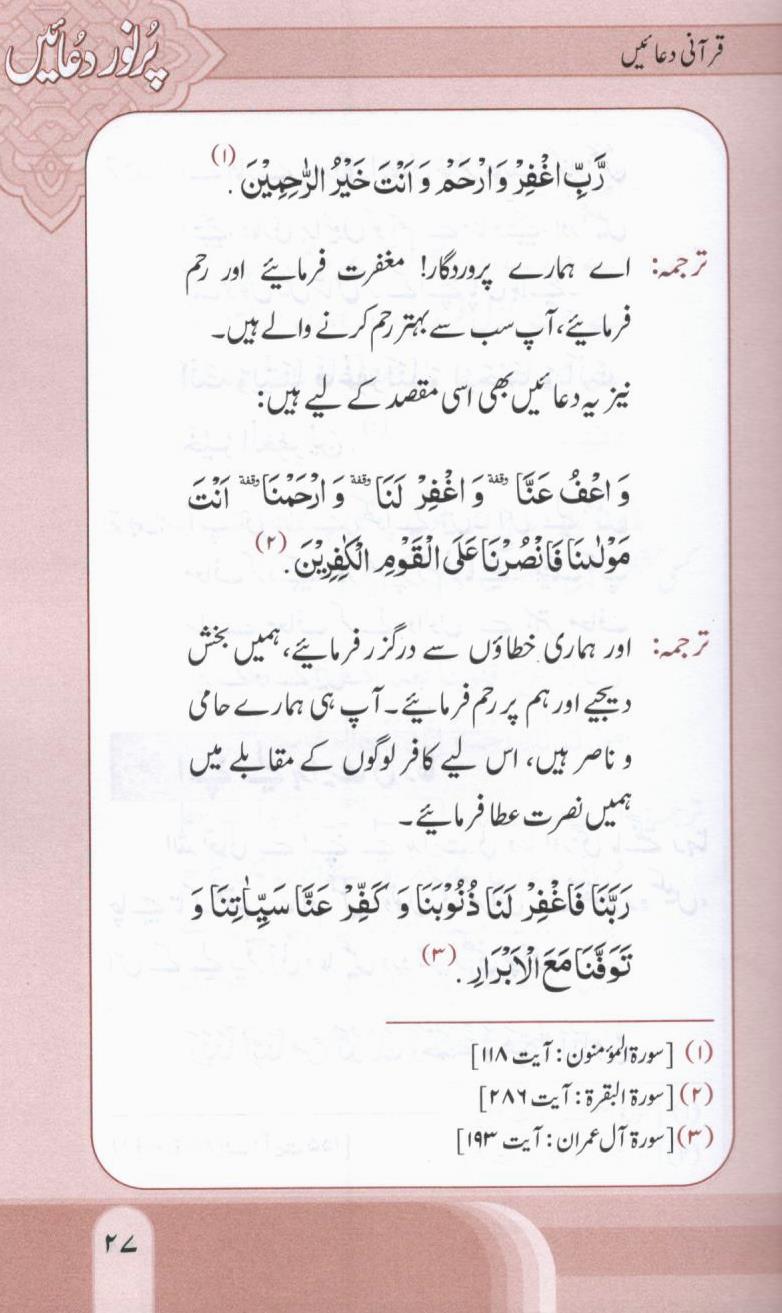 قرآنی دعائیں
پُرنور دعُائیں
رَّبِّ اغْفِرْ وَارْحَمْ وَ اَنْتَ خَيْرُ الرّٰحِمِيْنَ . (۱)
ترجمہ: اے ہمارے پروردگار! مغفرت فرمائیے اور رحم
فرمائیے، آپ سب سے بہتر رحم کرنے والے ہیں۔
نیز یہ دعائیں بھی اسی مقصد کے لیے ہیں:
وَ اعْفُ عَنَّا وقفة وَ اغْفِرْ لَنَا وقفة وَ ارْحَمْنَا وقفة اَنْتَ
مَوْلٰىنَا فَانْصُرْنَا عَلَى الْقَوْمِ الْكٰفِرِيْنَ . (۲)
ترجمہ: اور ہماری خطاؤں سے درگزر فرمائیے، ہمیں بخش
دیجیے اور ہم پر رحم فرمائیے۔ آپ ہی ہمارے حامی
و ناصر ہیں، اس لیے کافر لوگوں کے مقابلے میں
ہمیں نصرت عطا فرمائیے۔
رَبَّنَا فَاغْفِرْ لَنَا ذُنُوْبَنَا وَ كَفِّرْ عَنَّا سَيِّاٰتِنَا وَ
تَوَفَّنَا مَعَ الْاَبْرَارِ . (۳)
(۱) [سورۃ المؤمنون: آیت ۱۱۸]
(۲) [سورۃ البقرۃ: آیت ۲۸۶]
(۳) [سورۃ آل عمران: آیت ۱۹۳]
۲۷